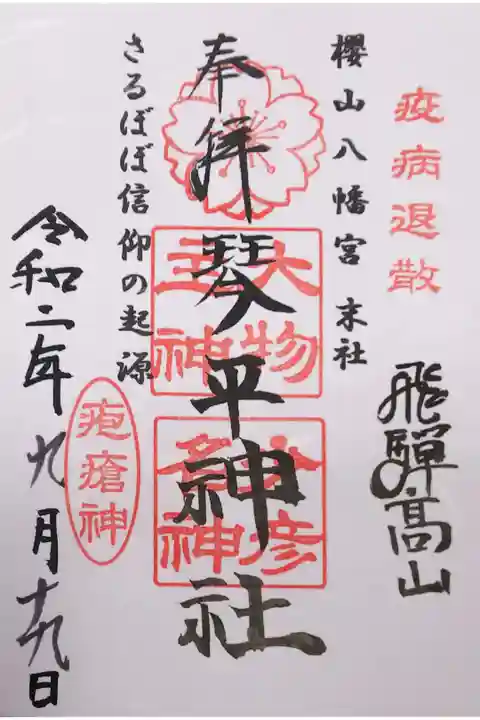 疫病退散
飛騨高山
櫻山八幡宮 末社
奉拝
琴平神社
大物
主神
少彦
名神
さるぼぼ信仰の起源
疱瘡神
令和二年九月十九日